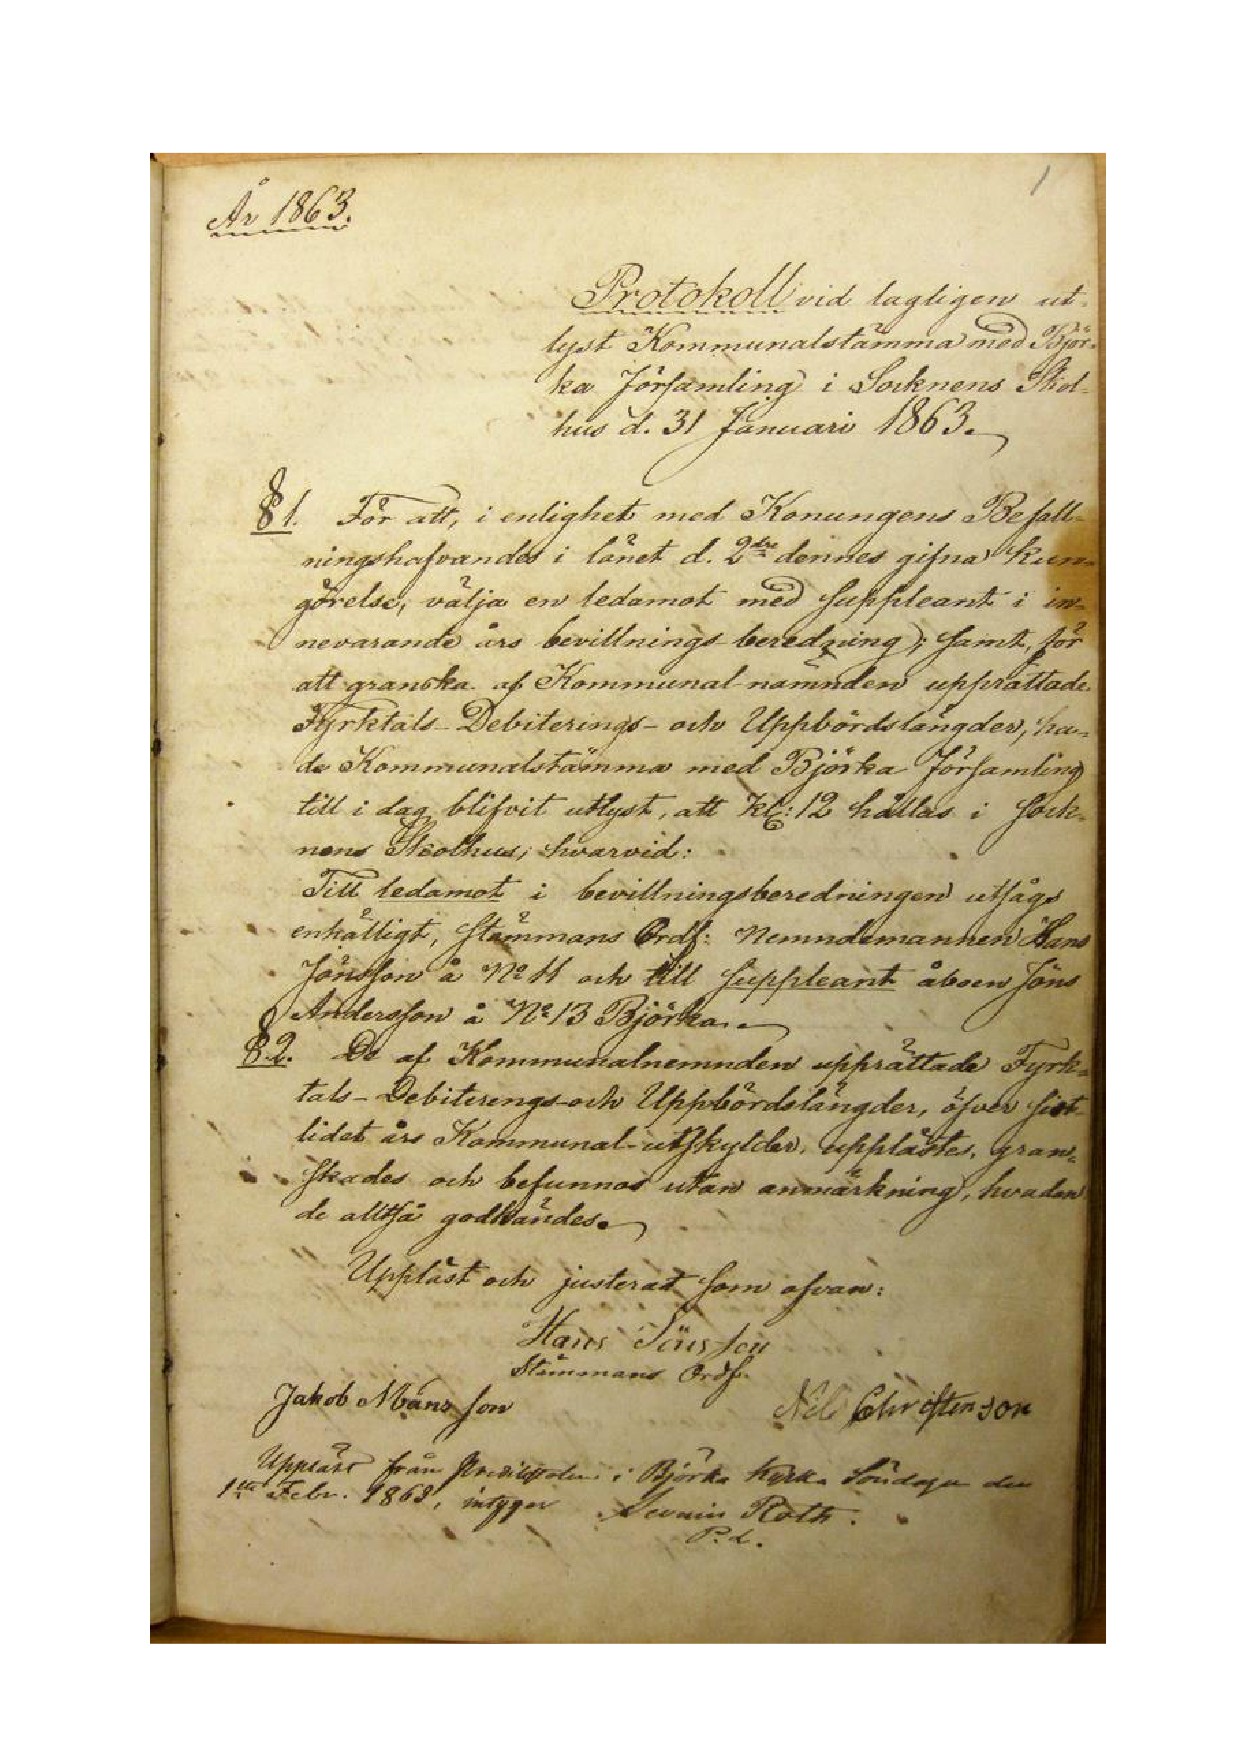 1
År 1863.
Protokoll vid lagligen ut-
lyst Kommunalstämma med Björ-
ka Församling i Socknens Skol-
hus d. 31 Januari 1863.
§ 1. För att, i enlighet med Konungens Befall-
ningshafvandes i länet d. 2dre dennes gifna kun-
görelse, välja en ledamot med suppleant i in-
nevarande års bevillnings beredning; samt, för
att granska af Kommunal-nämnden upprättade
Fyrktals- Debiterings- och Uppbördslängder, ha-
de Kommunalstämma med Björka Församling
till i dag blifvit utlyst, att Kl: 12 hållas i sock-
nens Skolhus; hvarvid:
Till ledamot i bevillningsberedningen utsågs
enhälligt, Stämmans Ordf: Nemndemannen Hans
Jönsson å No 11 och till suppleant åboen Jöns
Andersson å No 13 Björka.
§ 2. De af Kommunalnemnden upprättade Fyrk-
tals- Debiterings- och Uppbördslängder, öfver sist-
lidet års Kommunal-utskylder, upplästes, gran-
skades och befunnos utan anmärkning, hvadan
de alltså godkändes.
Uppläst och justerat som ofvan:
Hans Jönsson
Stämmans Ordf.
Jakob Månsson Nils Christenson
Uppläst från Predikstolen i Björka Kyrka Söndagen den
1sta Febr. 1863, intygar Roth.
P. L.